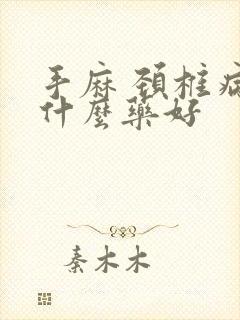 手麻 颈椎病
什麼藥好
秦木木